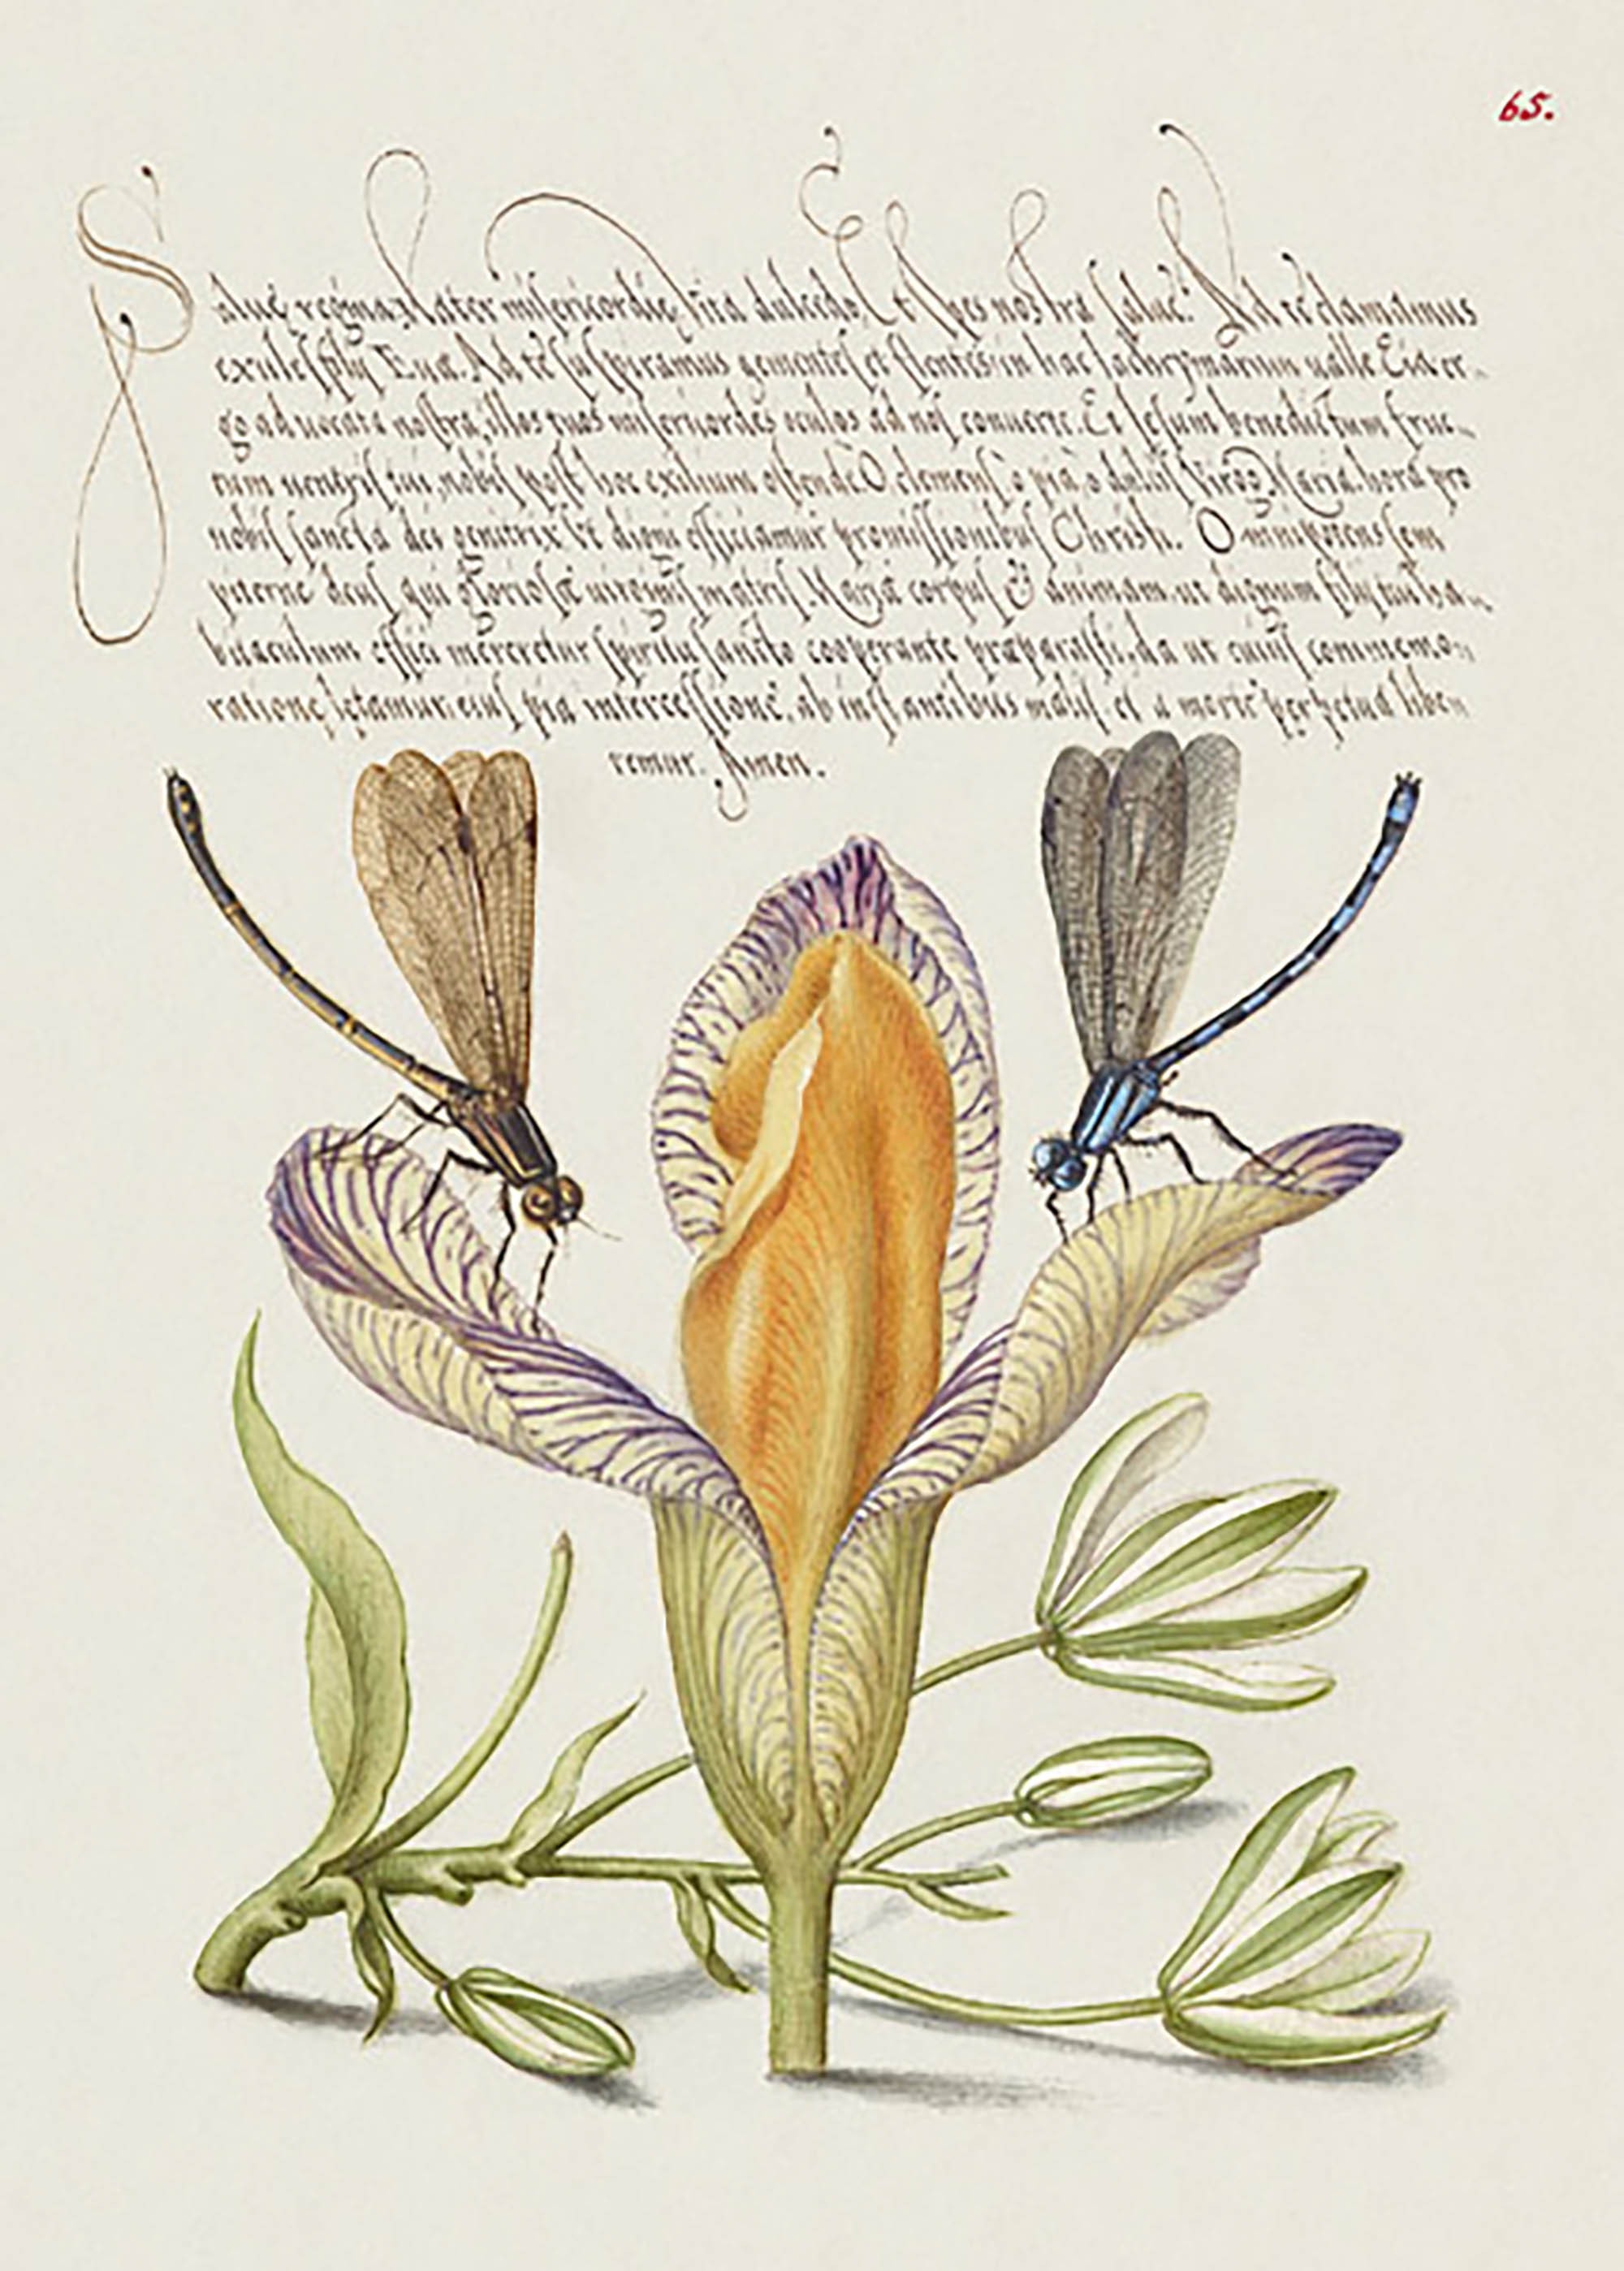 65.
Salue regina, Mater misericordie, Vita dulcedo, Et spes nostra salue. Ad te clamamus
exules filij Euæ. Ad te suspiramus gementes et flentes in hac lachrymarum ualle. Eia er-
go aduocata nostra, illos tuos misericordes oculos ad nos conuerte. Et Iesum benedictum fruc-
tum uentris tui, nobis post hoc exilium ostende. O clemens, o pia, o dulcis Virgo Maria. hora pro
nobis sancta dei genitrix. Vt digni efficiamur promissionibus Christi. Omnipotens sem
piterne deus, qui gloriosæ uirginis matris Mariæ corpus & animam. ut dignum filij tui ha-
bitaculum effici mereretur spiritu sancto cooperante præparasti, da ut cuius commemo-
ratione letamur. eius pia intercessione, ab instantibus malis et a morte perpetua libe-
remur. Amen.